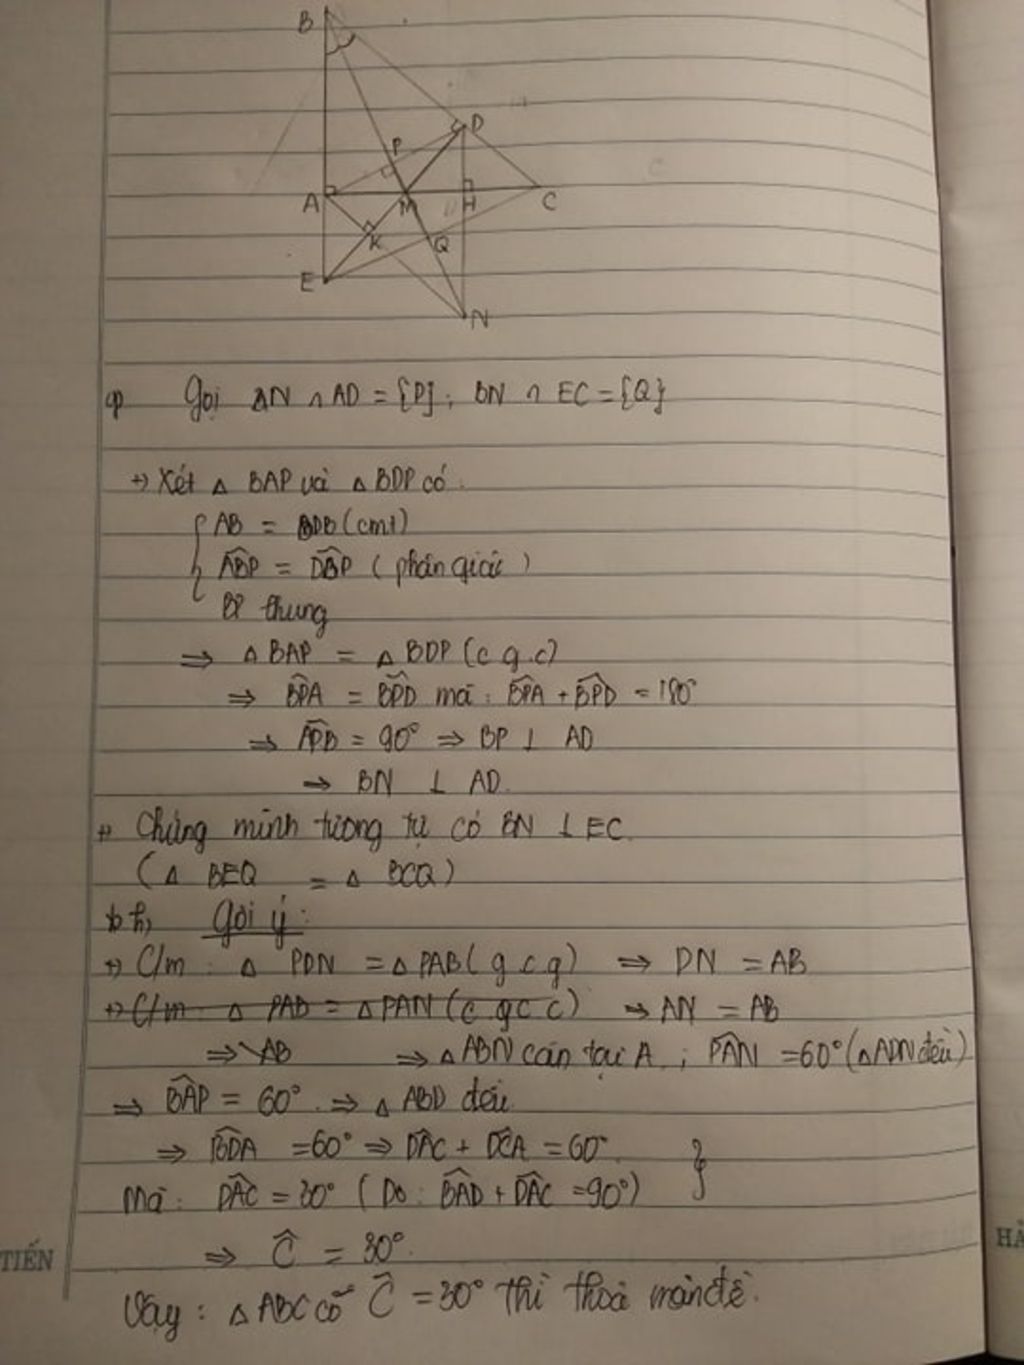 B
D
P
A
M
H
C
K
Q
E
N
g) Gọi BN ∩ AD = {P}; BN ∩ EC = {Q}
+) Xét △ BAP và △ BDP có:
AB = BD (cmt)
ABP = DBP (phân giác)
BP chung
⇒ △ BAP = △ BDP (c.g.c)
⇒ BPA = BPD mà: BPA + BPD = 180°
⇒ APB = 90° ⇒ BP ⊥ AD
⇒ BN ⊥ AD.
+) Chứng minh tương tự có BN ⊥ EC.
(△ BEQ = △ BCQ)
h) Gợi ý:
+) C/m: △ PDN = △ PAB (g.c.g) ⇒ DN = AB
+) C/m: △ PAD = △ PAN (c.gc.c) → AN = AB
⇒ AB ⇒ △ ABN cân tại A; PAN = 60° (△ ADN đều)
⇒ BAP = 60° ⇒ △ ABD đều
⇒ BDA = 60° ⇒ DAC + DCA = 60°
Mà: DAC = 30° (Do: BAD + DAC = 90°)
⇒ C = 30°
Vậy: △ ABC có C = 30° thì thoả mãn đề.
TIẾN
HẢ